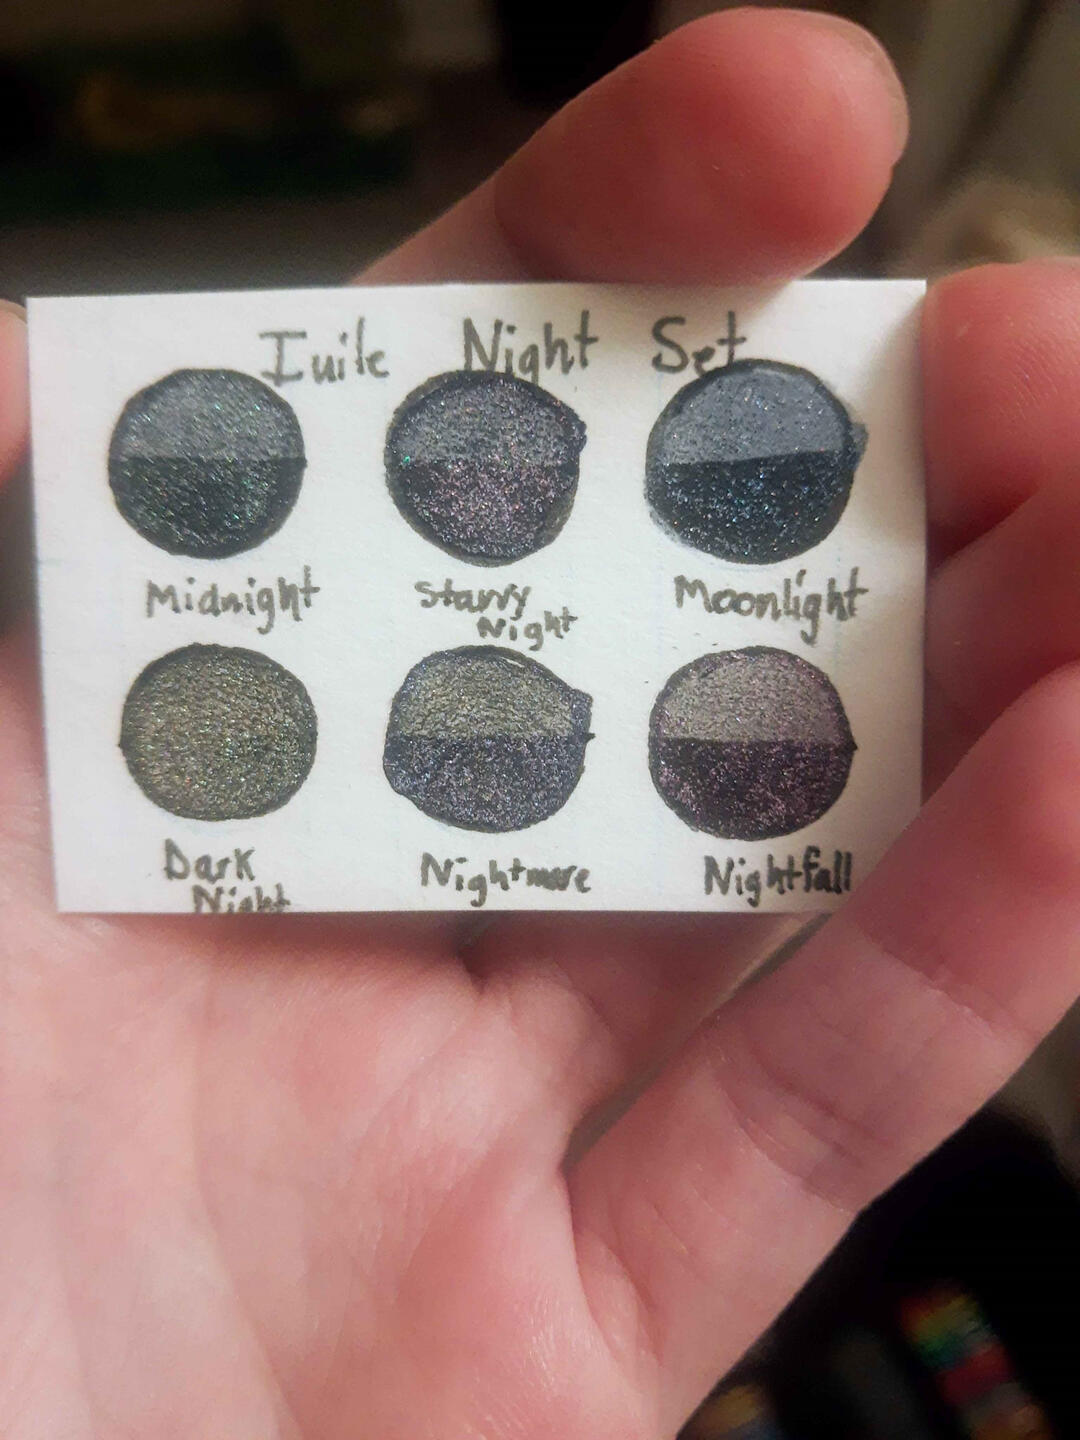 Iuile Night Set
Midnight
Starry
Night
Moonlight
Dark
Night
Nightmare
Nightfall